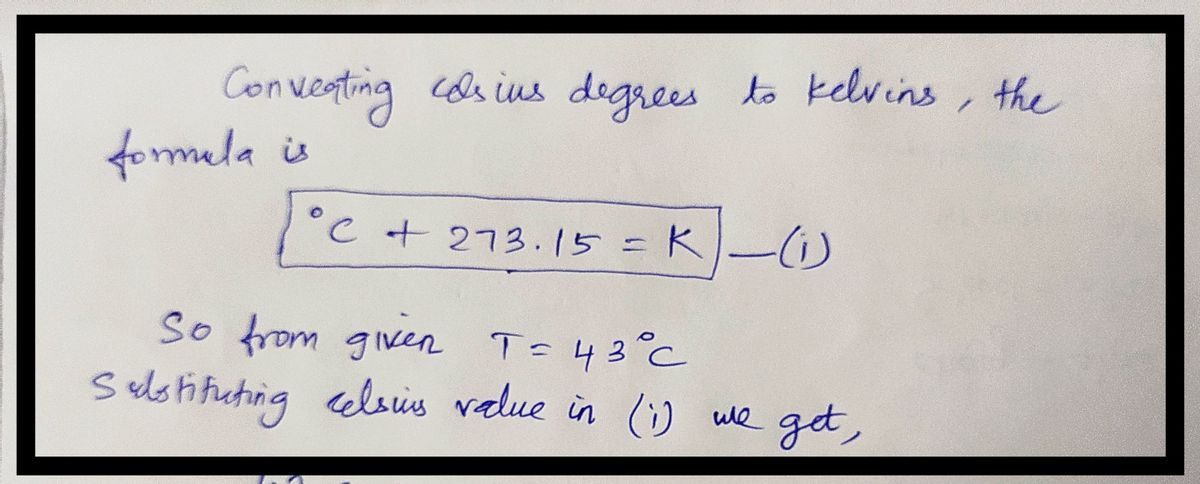 Converting celsius degrees to kelvins, the
formula is
°C + 273.15 = K —(i)
So from given T = 43°C
Substituting celsius value in (i) we get,